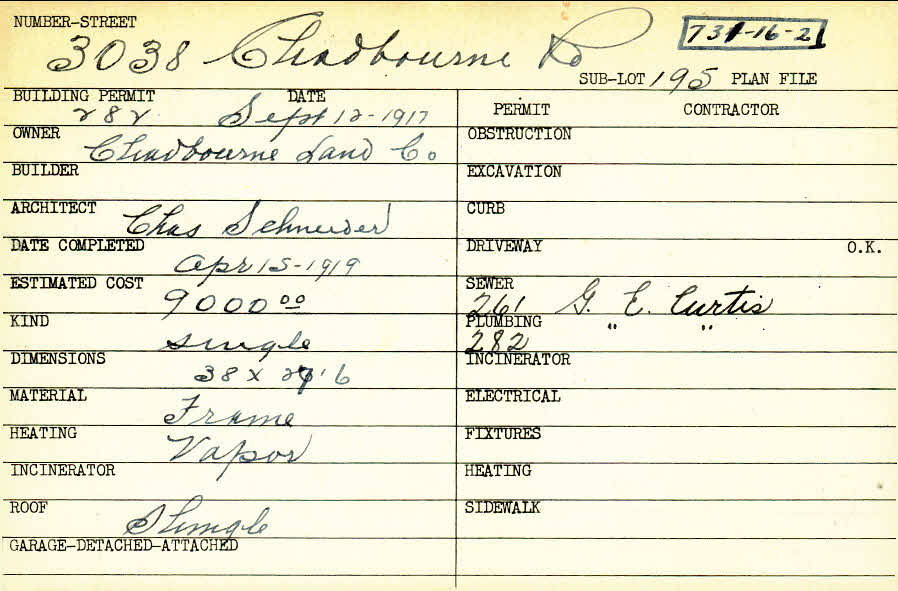 NUMBER-STREET
3038 Chadbourne Rd
731-16-21
SUB-LOT 195 PLAN FILE
BUILDING PERMIT DATE
282 Sept 12-1917
OWNER
Chadbourne Land Co
BUILDER
ARCHITECT Chas Schneider
DATE COMPLETED
Apr 15-1919
ESTIMATED COST
9000 00
KIND
single
DIMENSIONS
38 x
MATERIAL
Frame
HEATING
Vapor
INCINERATOR
ROOF
Shingle
GARAGE-DETACHED-ATTACHED
PERMIT CONTRACTOR
OBSTRUCTION
EXCAVATION
CURB
DRIVEWAY O.K.
SEWER
261 G. E. Curtis
PLUMBING " "
282
INCINERATOR
ELECTRICAL
FIXTURES
HEATING
SIDEWALK